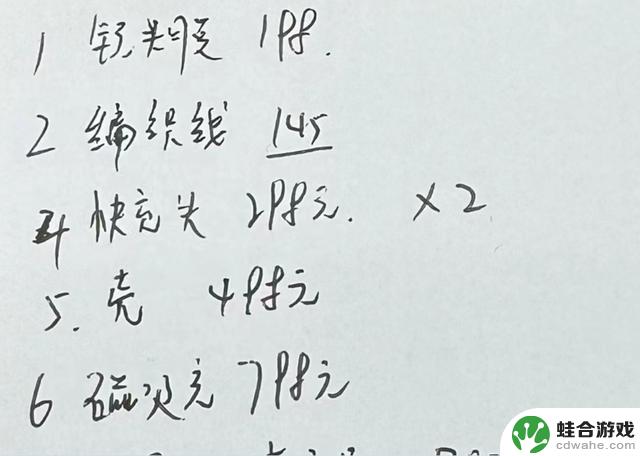 1 镜头膜 198.
2 编织线 145
4 快充头 298元. ×2
5. 壳 498元
6 磁吸充 798元
蛙合游戏
cdwahe.com